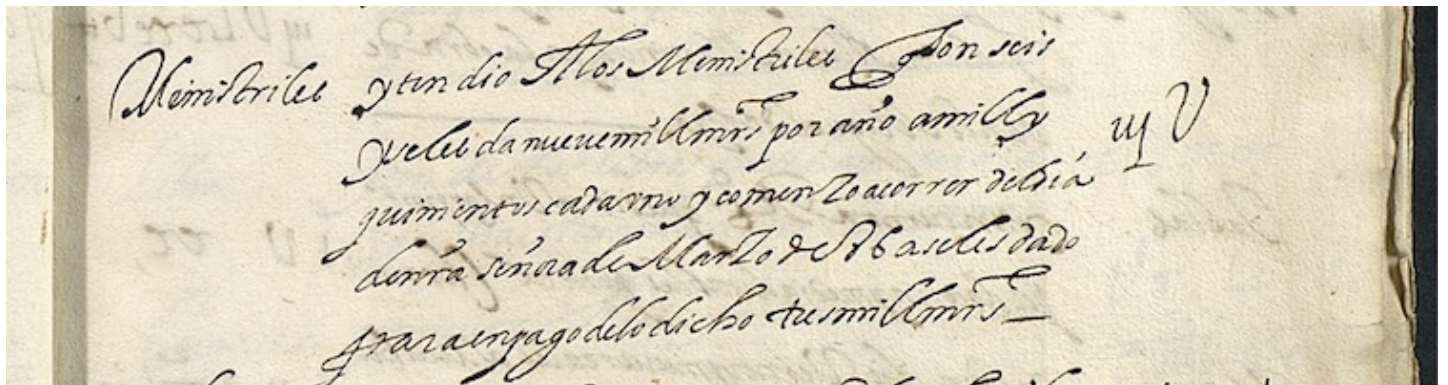 Menistriles yten dio A los Menistriles q son seis
y seles da nueve mill mrs por año a mill y
quinientos cada vno y comenzo a correr del dia
de nra señora de Marzo de seles dado
para en pago de lo dicho tres mill mrs
iij U